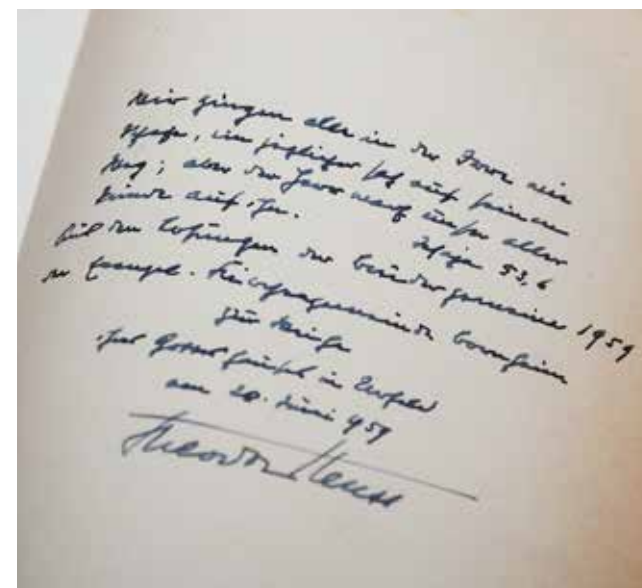 Wir gingen alle in der Irre wie
Schafe, ein jeglicher sah auf seinen
Weg; aber der Herr warf unser aller
Sünde auf ihn. Jesaja 53,6
Aus den Losungen der Brüdergemeine 1959
der Evangel. Kirchengemeinde Bornheim
zur Weihe
ihres Gotteshauses in
am 20. Juni 1959
Theodor Heuss